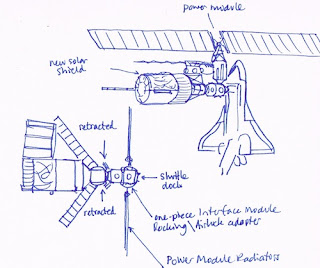 power module
new solar
shield
retracted
shuttle
dock
retracted
one-piece Interface Module
Docking \ Airlock adapter
Power Module Radiators